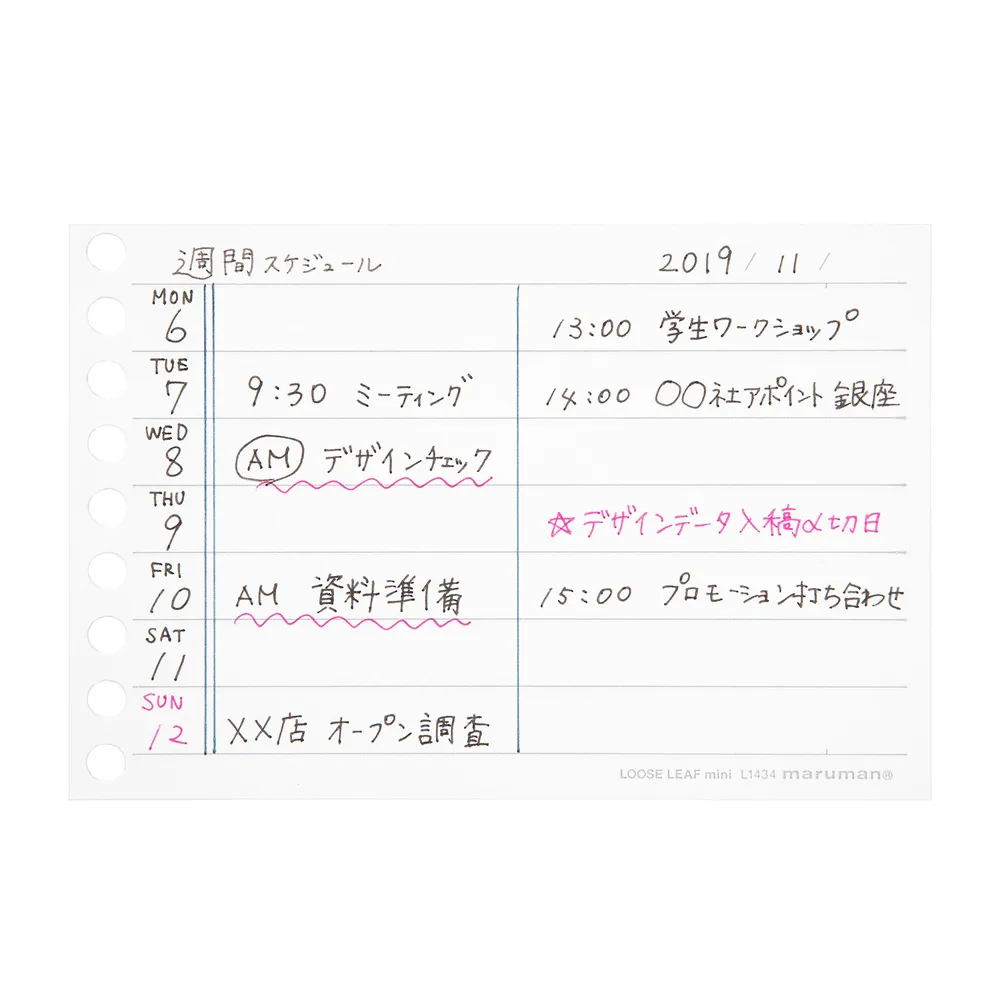 週間スケジュール 2019/ 11 /
MON
6 13:00 学生ワークショップ
TUE
7 9:30 ミーティング 14:00 〇〇社アポイント 銀座
WED
8 AM デザインチェック
THU
9 ☆デザインデータ入稿〆切日
FRI
10 AM 資料準備 15:00 プロモーション打ち合わせ
SAT
11
SUN
12 XX店 オープン調査
LOOSE LEAF mini L1434 maruman®